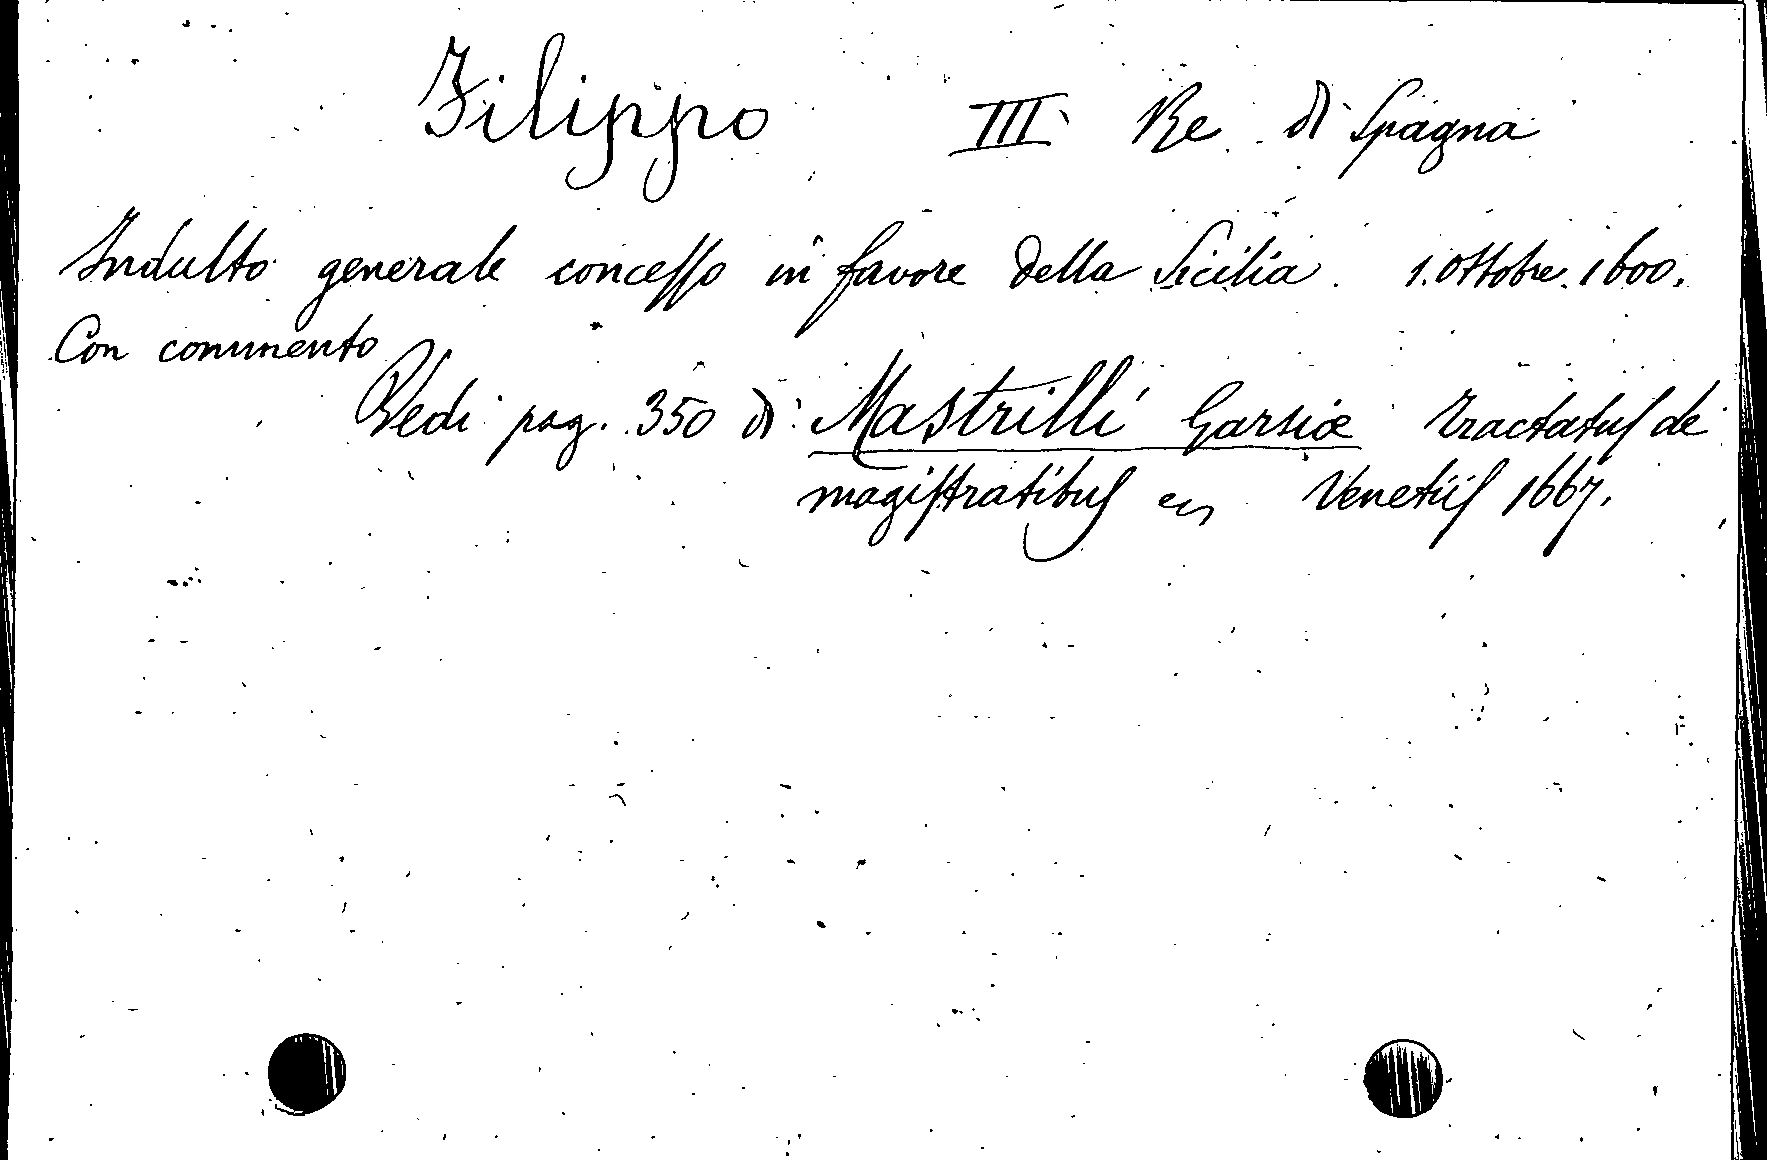 Filippo III Re di Spagna
Indulto generale concesso in favore della Sicilia. 1. Ottobre. 1600.
Con commento
Vedi pag. 350 di Mastrilli Garsiæ Tractatus de
magistratibus Venetiis 1667.